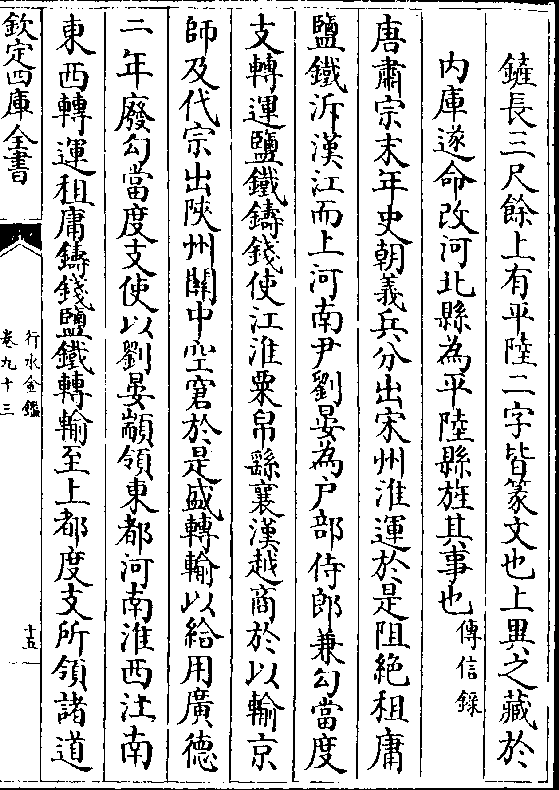 鏟長三尺餘上有平陸二字皆篆文也上異之藏於
内庫遂命改河北縣為平陸縣旌其事也傳信錄
唐肅宗末年史朝義兵分出宋州淮運於是阻絶租庸
鹽鐵泝漢江而上河南尹劉晏為户部侍郎兼勾當度
支轉運鹽鐵鑄錢使江淮粟帛繇襄漢越商於以輸京
師及代宗出陜州關中空窘於是盛轉輸以給用廣德
二年廢勾當度支使以劉晏顓領東都河南淮西江南
東西轉運租庸鑄錢鹽鐵轉輸至上都度支所領諸道
欽定四庫全書
行水金鑑
卷九十三
十五